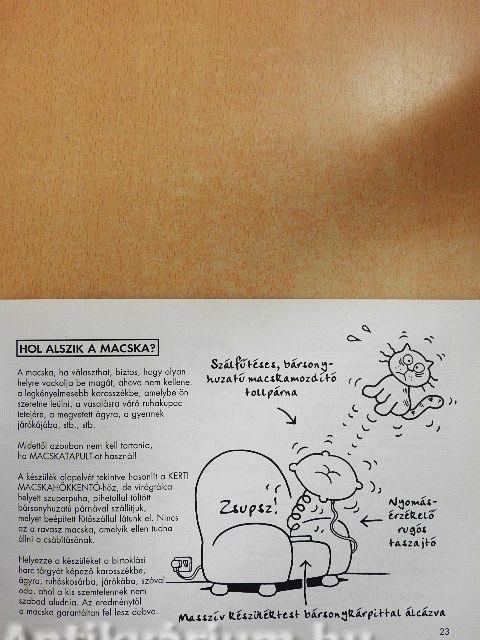 HOL ALSZIK A MACSKA?
A macska, ha választhat, biztos, hogy olyan
helyre vackolja be magát, ahova nem kellene:
a legkényelmesebb karosszékbe, amelybe ön
szeretne leülni, a vasalásra váró ruhakupac
tetejére, a megvetett ágyra, a gyermek
járókájába, stb., stb.
Midettől azonban nem kell tartania,
ha MACSKATAPULT-ot használ!
A készülék alapelvét tekintve hasonlít a KERTI
MACSKAHÖKKENTŐ-höz, de virágtálca
helyett szuperpuha, pihetollul töltött
bársonyhuzatú párnával szállítjuk,
melyet beépített fűtőszállal látunk el. Nincs
az a ravasz macska, amelyik ellen tudna
állni a csábításának.
Helyezze a készüléket a birtoklási
harc tárgyát képező karosszékbe,
ágyra, ruhóskosárba, járókába, szóval
oda, ahol a kis szemtelennek nem
szabad aludnia. Az eredménytől
a macska garantáltan fel lesz dobva.
Szálfűtéses, bársony-
huzatú macskamozdító
tollpárna
Zsupsz!
Nyomás-
érzékelő
rugós
taszajtó
Masszív készüléktest bársonykárpittal álcázva
23